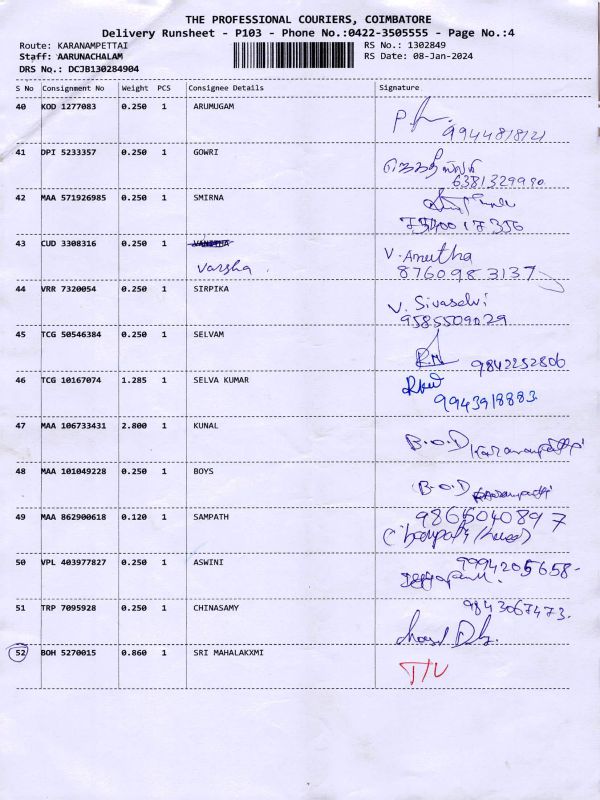 THE PROFESSIONAL COURIERS, COIMBATORE
Delivery Runsheet - P103 - Phone No.:0422-3505555 - Page No.:4
Route: KARANAMPETTAI RS No.: 1302849
Staff: AARUNACHALAM RS Date: 08-Jan-2024
DRS No.: DCJB130284904
S No Consignment No Weight PCS Consignee Details Signature
40 KOD 1277083 0.250 1 ARUMUGAM
41 DPI 5233357 0.250 1 GOWRI
6381329990
42 MAA 571926985 0.250 1 SMIRNA
43 CUD 3308316 0.250 1 VANITHA V. Anutha
varsha. 8760983137
44 VRR 7320054 0.250 1 SIRPIKA V. Sivaselvi
9585509029
45 TCG 50546384 0.250 1 SELVAM
9842252806
46 TCG 10167074 1.285 1 SELVA KUMAR
9943918883
47 MAA 106733431 2.800 1 KUNAL B.O.D
48 MAA 101049228 0.250 1 BOYS B.O.D
49 MAA 862900618 0.120 1 SAMPATH 9865040897
50 VPL 403977827 0.250 1 ASWINI 9994205658-
51 TRP 7095928 0.250 1 CHINASAMY 9843067473.
52 BOH 5270015 0.860 1 SRI MAHALAKXMI